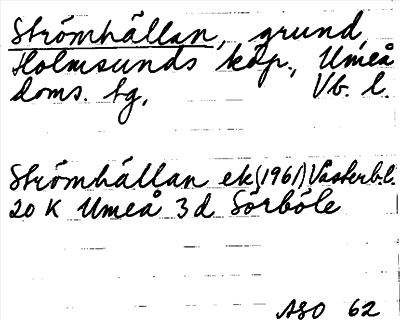 Strömhällan, grund,
Holmsunds köp., Umeå
doms. tg, Vb. l.
Strömhällan ek (1961) Västerb.l.
20 K Umeå 3 d Sörböle
ASO 62